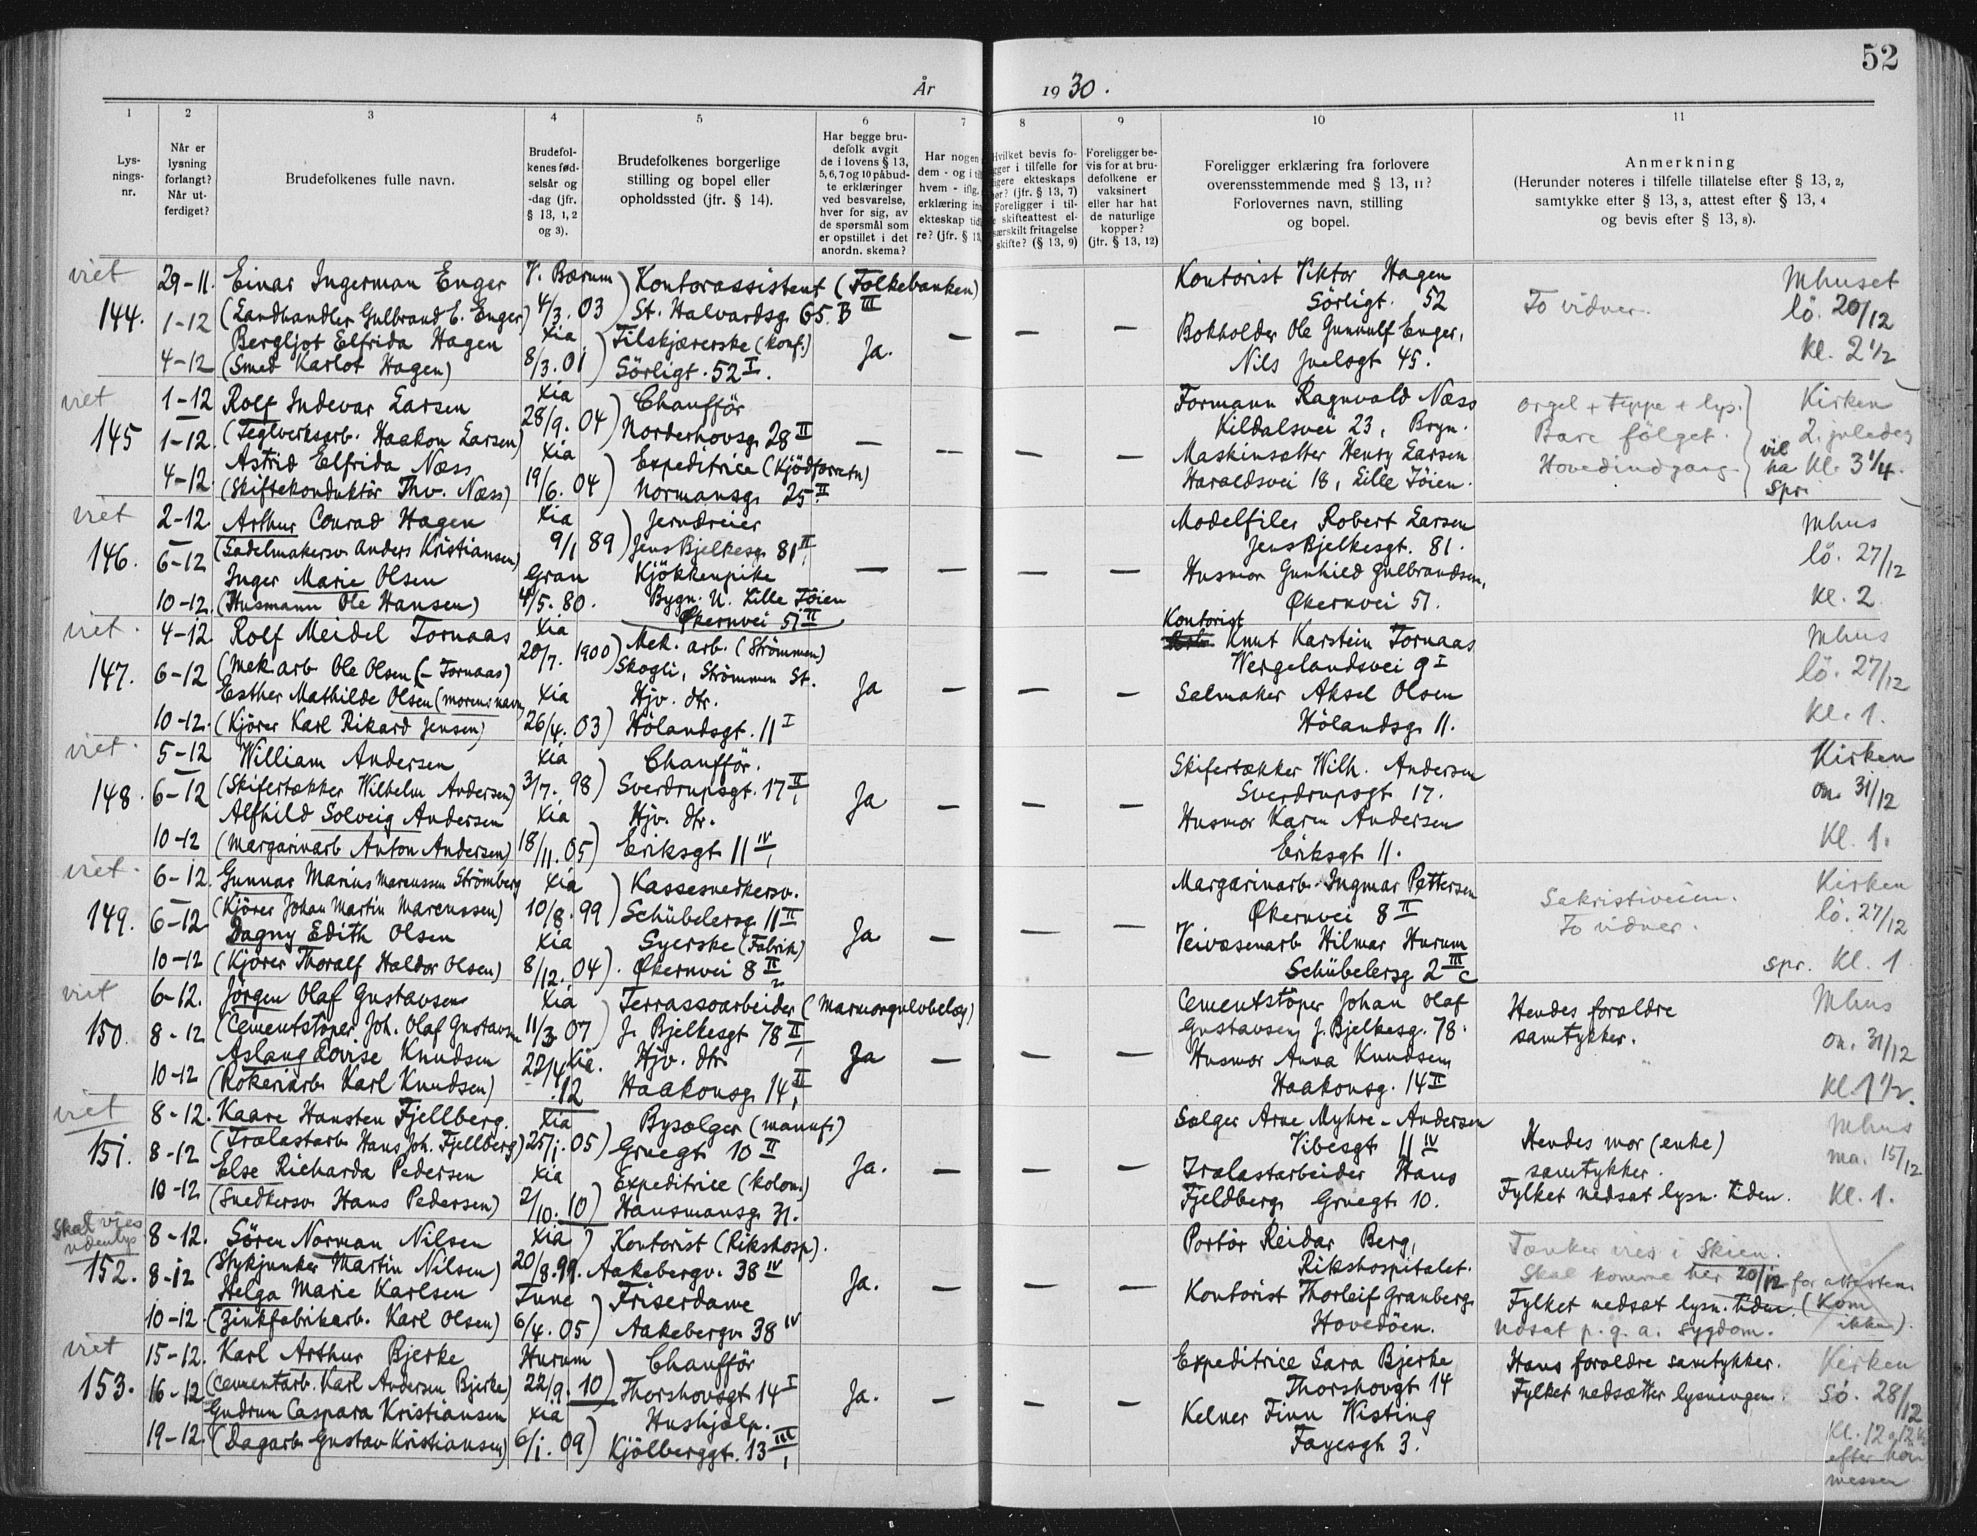 52
År 1930.
1 2 3 4 5 6 7 8 9 10 11
Lys-
nings-
nr.
Når er
lysning
forlangt?
Når ut-
ferdiget?
Brudefolkenes fulle navn.
Brudefol-
kenes fød-
selsår og
-dag (jfr.
§ 13, 1, 2
og 3).
Brudefolkenes borgerlige
stilling og bopel eller
opholdssted (jfr. § 14).
Har begge bru-
defolk avgit
de i lovens § 13,
5, 6, 7 og 10 påbud-
te erklæringer
ved besvarelse,
hver for sig, av
de spørsmål som
er opstillet i det
anordn. skema?
Har nogen
dem - og i
hvem - iflg.
erklæring
ekteskap
re? (jfr. § 13
Hvilket bevis fo-
gger i tilfelle for
ekteskaps
(jfr. § 13, 7)
Foreligger i til-
skifteattest el-
særskilt fritagelse
skifte? (§ 13, 9)
Foreligger be-
vis for at bru-
defolkene er
vaksinert
eller har hat
de naturlige
kopper?
(jfr. § 13, 12)
Foreligger erklæring fra forlovere
overensstemmende med § 13, 11?
Forlovernes navn, stilling
og bopel.
Anmerkning
(Herunder noteres i tilfelle tillatelse efter § 13, 2,
samtykke efter § 13, 3, attest efter § 13, 4
og bevis efter § 13, 8).
viet
144.
29-11.
1-12
4-12
Einar Ingerman Enger
(Landhandler Gulbrand E. Enger)
Bergljot Elfrida Hagen
(Smed Karlot Hagen)
V. Bærum
4/3. 03
Xia
8/3. 01
Kontorassistent (Folkebanken)
St. Halvardsg. 65. B III
Tilskjærerske (konf.)
Sörligt. 52 I.
Ja. — — —
Kontorist Viktor Hagen
Sörligt. 52
Bokholder Ole Gunnulf Enger,
Nils Juelsgt 45.
To vidner.
Mhuset
lö. 20/12
Kl. 2 1/2
viet
145
1-12
1-12.
4-12.
Rolf Indevar Larsen
(Teglverksarb. Haakon Larsen)
Astrid Elfrida Næss
(Skiftekonduktör Thv. Næss)
Xia
28/9. 04
Xia
19/6. 04
Chaufför
Norderhovsg. 28 II
Expeditrice (Kjödforretn)
Normansg. 25 II
— — — —
Formann Ragnvald Næss
Kildalsvei 23, Bryn.
Maskinsetter Henry Larsen
Haraldsvei 18, Lille Töien.
Orgel + teppe + lys.
Bare fölget.
Hovedindgang.
Kirken
2. juledag
vil ha spr.
Kl. 3 1/4.
viet
146.
2-12
6-12
10-12.
Arthur Conrad Hagen
(Sadelmakersv. Anders Kristiansen)
Inger Marie Olsen
(Husmann Ole Hansen)
Xia
9/1 89
Gran
4/5. 80.
Jerndreier
Jens Bjelkesg. 81 II
Kjökkenpike
Bygn. U. Lille Töien
Økernvei 51 II
— — — —
Modelfiler Robert Larsen
Jens Bjelkesgt. 81.
Husmor Gunhild Gulbrandsen,
Økernvei 51.
Mhus
lö. 27/12
Kl. 2
viet.
147.
4-12
6-12
10-12.
Rolf Meidel Tornaas
(Mek. arb. Ole Olsen (- Tornaas)
Esther Mathilde Olsen (morens navn)
(Kjörer Karl Rikard Jensen)
Xia
20/7. 1900
Xia
26/4. 03
Mek. arb. (Strömmen)
Skogli, Strömmen St.
Hjv. dtr.
Hölandsgt. 11 I
Ja — — —
Kontorist
Knut Karstein Tornaas
Wergelandsvei 9 I
Salmaker Aksel Olsen
Hölandsg. 11.
Mhus
lö. 27/12
Kl. 1.
viet.
148.
5-12
6-12
10-12
William Andersen
(Skifertækker Wilhelm Andersen)
Alfhild Solveig Andersen
(Margarinarb Anton Andersen)
Xia
3/7. 98
Xia
18/11. 05
Chaufför.
Sverdrupsgt. 17 II
Hjv. dtr.
Eriksgt 11 IV
Ja — — —
Skifertækker Wilh. Andersen
Sverdrupsgt 17.
Husmor Karen Andersen
Eriksgt 11.
Kirken
on. 31/12
Kl. 1.
viet.
149.
6-12.
6-12
10-12
Gunnar Marius Marcussen Strömberg
(Kjörer Johan Martin Marcussen)
Dagny Edith Olsen
(Kjörer Thoralf Haldor Olsen)
Xia
10/8. 99
Xia
8/12. 04
Kassesnedkersv.
Schübelersg. 11 II
Syerske (Fabrik)
Økernvei 8 II
Ja — — —
Margarinarb. Ingmar Pettersen
Økernvei 8 II
Veivæsenarb. Hilmar Hurum
Schübelersg 2 III c
Sakristiveien.
To vidner.
Kirken
lö. 27/12
spr. Kl. 1
viet
150.
6-12.
8-12
10-12
Jörgen Olaf Gustavsen
(Cementstöper Joh. Olaf Gustavsen
Aslaug Lovise Knudsen
(Rökeriarb. Karl Knudsen)
Xia
11/3. 07
Xia.
22/4. 12
Terrassoarbeider (Marmorgulvbelæg)
J. Bjelkesgt 78 II
Hjv. dtr.
Haakonsg. 14 II
Ja — — —
Cementstöper Johan Olaf
Gustavsen, J. Bjelkesg. 78.
Husmor Anna Knudsen
Haakonsg. 14 II
Hendes foreldre
samtykker.
Mhus
on. 31/12
Kl. 1 1/2.
viet
151.
8-12.
8-12
10-12
Kaare Hansten Fjellberg.
(Trælastarb. Hans Joh. Fjellberg)
Else Richarda Pedersen
(Snedkersv. Hans Pedersen)
Xia
25/1. 05
Xia
2/10. 10
Bysælger (manuf.)
Gruegt 10 II
Expeditrice (kolon.)
Hansmansg. 31.
Ja. — — —
Sælger Arne Myhre-Andersen
Vibesgt 11 IV
Trælastarbeider Hans
Fjeldberg Gruegt 10.
Hendes mor (enke)
samtykker.
Fylket nedsat lysn. tiden.
Mhus
ma. 15/12
Kl. 1.
Skal vies
utenbys
152.
8-12.
8-12
10-12.
Sören Norman Nilsen
(Stykjunker Martin Nilsen)
Helga Marie Karlsen
(Zinkfabrikarb. Karl Olsen)
Xia
20/8. 99.
Tune
6/4. 05
Kontorist (Rikshosp.)
Aakebergv. 38 IV
Friserdame
Aakebergv. 38 IV
Ja. — — —
Portör Reidar Berg,
Rikshospitalet.
Kontorist Thorleif Granberg
Hovedöen.
Tænker vies i Skien.
Skal komme her 20/12 for attesten.
Fylket nedsat lysn. tiden. (Kom ikke).
Nedsat p. g. a. sygdom.
viet
153.
15-12.
16-12
19-12.
Karl Arthur Bjerke
(Cementarb. Karl Andersen Bjerke)
Gudrun Caspara Kristiansen
(Dagarb. Gustav Kristiansen)
Hurum
22/9. 10
Xia
6/1. 09
Chaufför
Thorshovsgt 14 I
Hushjælp.
Kjölberggt. 13 III
Ja. — — —
Expeditrice Sara Bjerke
Thorshovgt 14
Kelner Finn Wisting
Fayesgt. 3.
Hans foreldre samtykker.
Fylket nedsætter lysningen.
Kirken
Sö. 28/12
Kl. 12
efter höi
messen